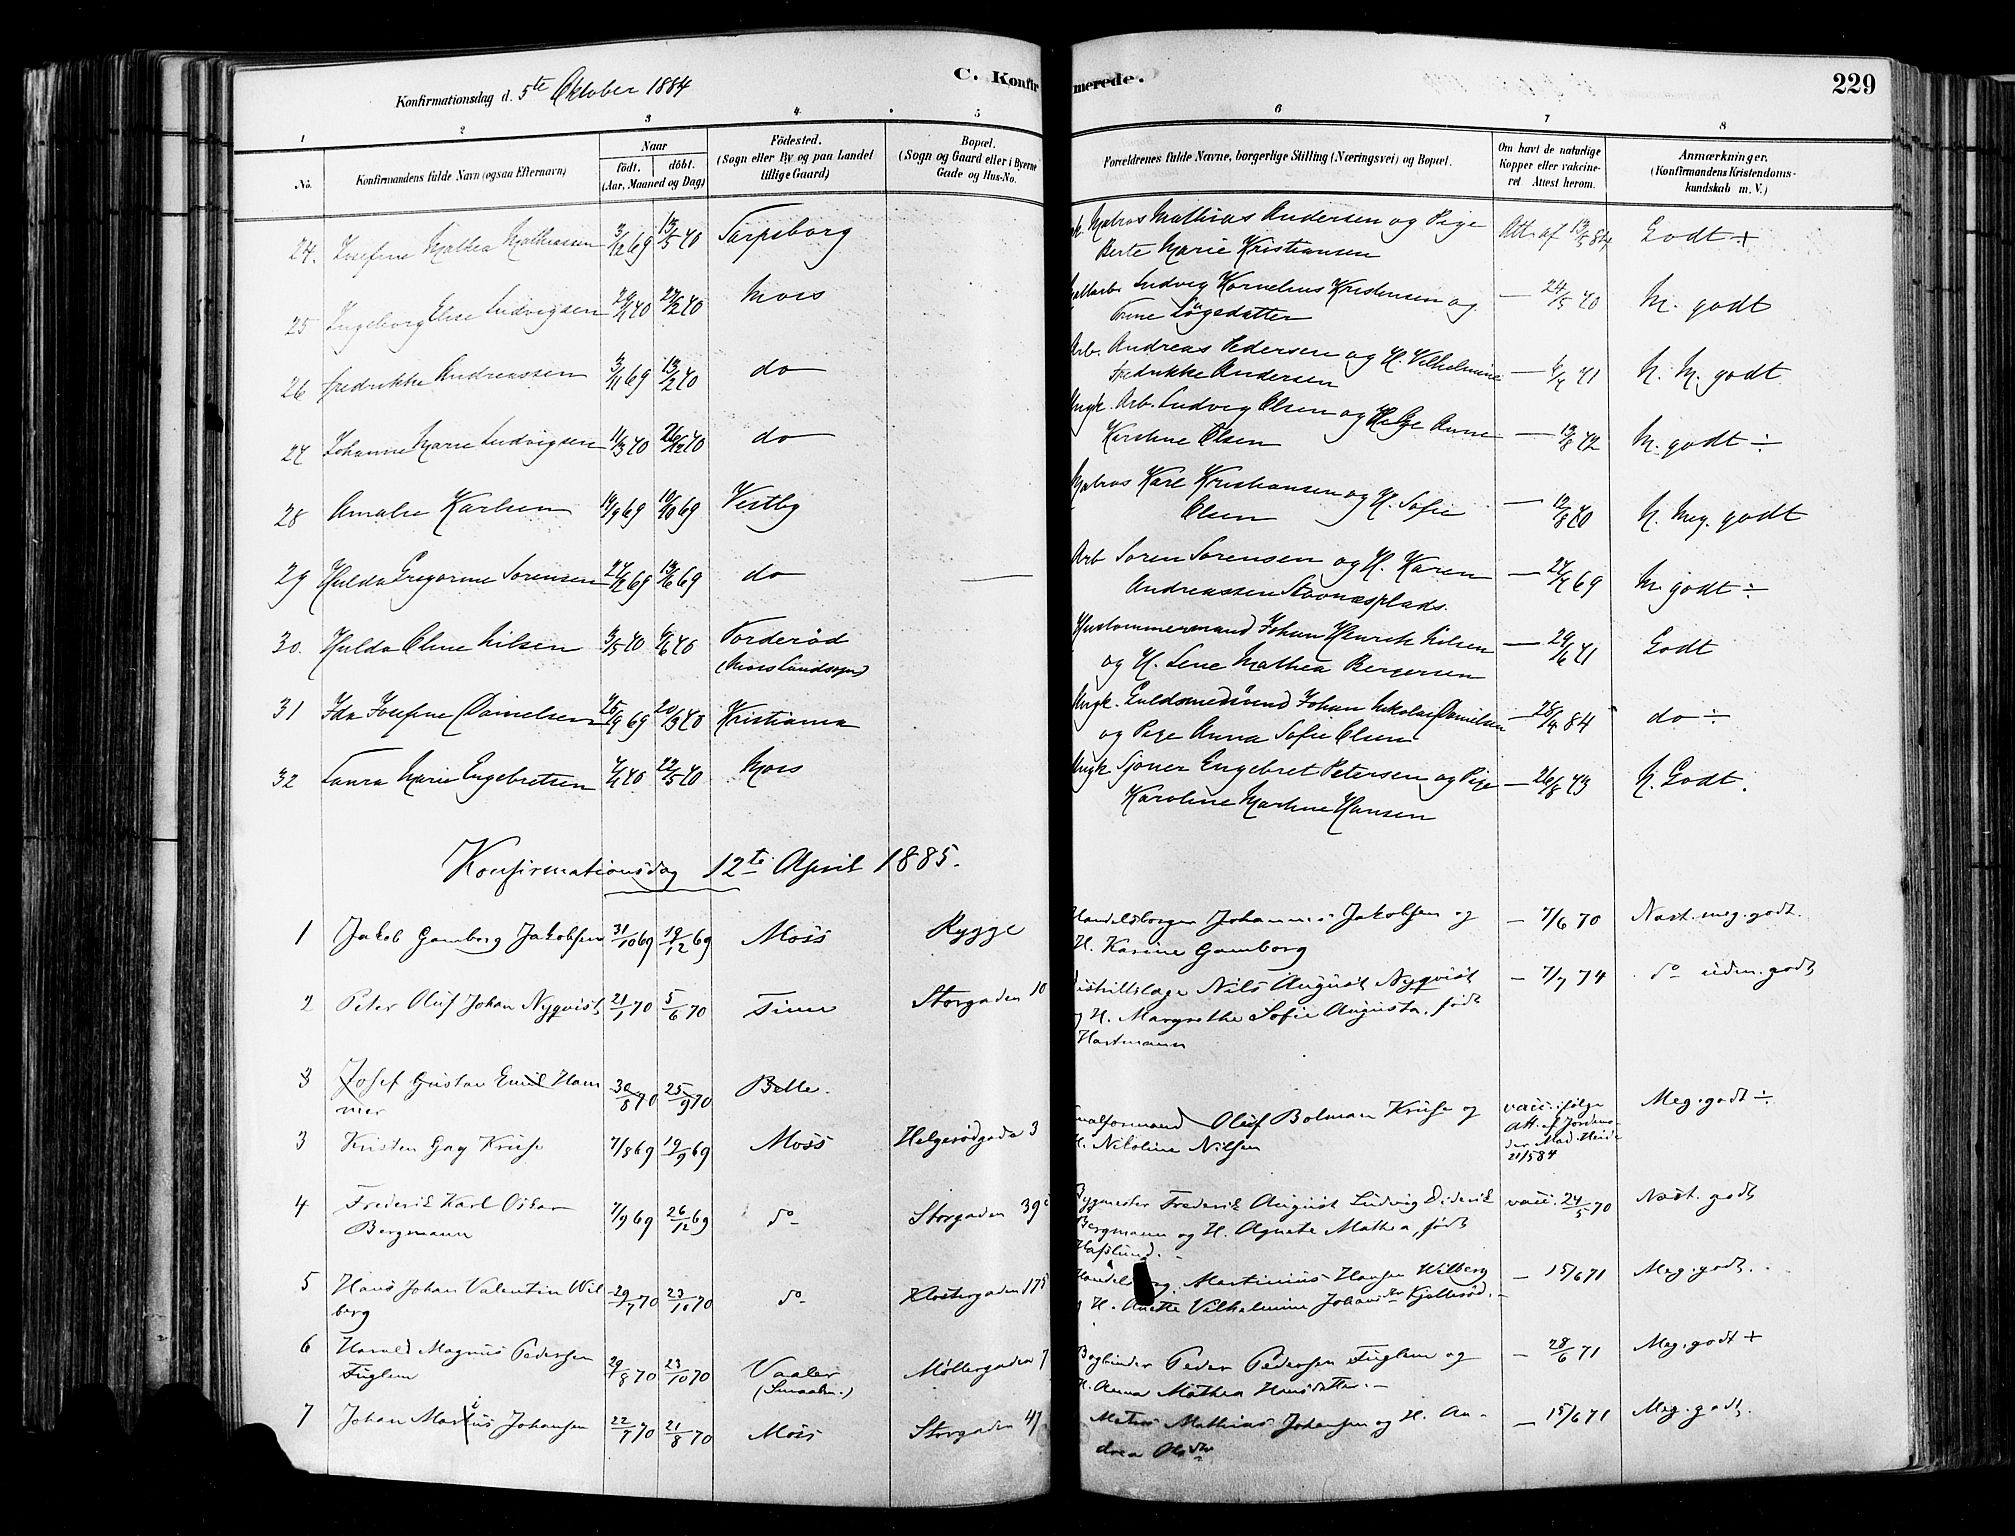 C. Konfirmerede.
229
Konfirmationsdag d. 5te Oktober 1884
1 2 3 4 5 6 7 8
No.
Konfirmandens fulde Navn (ogsaa Efternavn)
Naar
født. døbt.
(Aar, Maaned og Dag)
Födested.
(Sogn eller By og paa Landet
tillige Gaard)
Bopæl.
(Sogn og Gaard eller i Byerne
Gade og Hus-No.
Forældrenes fulde Navne, borgerlige Stilling (Næringsvei) og Bopæl.
Om havt de naturlige
Kopper eller vakcine-
ret Attest herom.
Anmærkninger.
(Konfirmandens Kristendoms-
kundskab m. V.)
24. Josefine Mathea Mathiassen 3/12 69 13/5 70 Sarpsborg Matros Mathias Andersen og Pige Att. af 13/5 84 Godt +
Berte Marie Kristiansen
25 Ingeborg Elise Ludvigsen 27/2 70 Moss Ludvig Kornelius Kristensen og — 24/5 70 M. godt
Trine Lügedatter
26 Fredrikke Andreassen 3/11 69 13/2 70 do Arb. Andreas Pedersen og H. Vilhelmine 71 N. M. godt
Fredrikke Andersen
27 Johanne Marie Ludvigsen 11/3 70 26/12 70 do Ungk. Arb. Ludvig Olsen og Anne — 13/8 72 M. godt ÷
Kirstine Olsen
28 Amalie Karlsen 14/9 69 10/10 69 Vestby Matros Karl Kristiansen og H. Sofie — 12/8 70 N. Meg. godt
Olsen
29 Hulda Gregorine Sorensen 69 69 do — Arb Soren Sorensen og H. Karen — 69 M. godt ÷
Andreassen
30. Huldo Oline Nilsen 3/5 70 6/6 70 Torderød Hustommermand Johan Henrik Nilsen — 29/6 71 Godt
(Moss Landsogn) og H. Lene Mathea Bergersen
31 Ida Josefine Danielsen 25/9 69 20/3 70 Kristiania Ungk. Guldsmedsvend Johan Nikolai Danielsen — 28/4 84 do ÷
og Pige Anna Sofie Olsen
32 Laura Marie Engebretsen 70 22/5 70 Moss Ungk Sjømr Engebret Petersen og Pige — 26/8 73 N. Godt.
Karoline Martine Hansen
Konfirmationsdag 12te April 1885.
1 Jakob Gamborg Jakobsen 31/10 69 19/12 69 Moss Rygge Handelsborger Johannes Jakobsen og — 7/6 70 Næst. meg. godt.
H. Karine Gamborg
2 Peter Oluf Johan Nyqvist 21/1 70 5/6 70 Storgaden 10 Nils August Nyqvist — 7/7 74 do uden. godt
og H. Margrethe Sofie Augusta, født
Hartmann
3 Josef Gustav Emil Ham 30/8 70 25/9 70 Belle.
mer
3 Kristen Gay Kruse 7/8 69 19/9 69 Moss Helgerødgade 3 Oluf Bolman Kruse og vacc. ifølge Meg. godt ÷
H. Nikoline Nilsen att. af Jordemo-
der Mad. Heide
21/5 84
4 Frederik Karl Oskar 7/9 69 26/12 69 do Storgaden 39 Bygmester Frederik August Ludvig Diderik vacc. 24/5 70 Næst. godt
Bergmann Bergmann og H. Agnete Mathea, født
Hafslund.
5 Hans Johan Valentin Wil 29/7 70 23/10 70 do Klostergaden 175 Martinius Hansen Wilberg — 15/6 71 Meg. godt.
berg og H. Anette Vilhelmine Johansdr Kjellerød.
6 Harald Magnus Pedersen 29/8 70 23/10 70 Vaaler Møllergaden 7 Bogbinder Peder Pedersen Fuglem og — 28/6 71 Meg. godt +
Fuglem (Smaalen.) H. Anna Mathea Hansdatter. —
7 Johan Marius Johansen 22/7 70 21/8 70 Moss Storgaden 47 Matros Mathias Johansen og H. An- — 15/6 71 Meg. godt.
drea Olsdtr